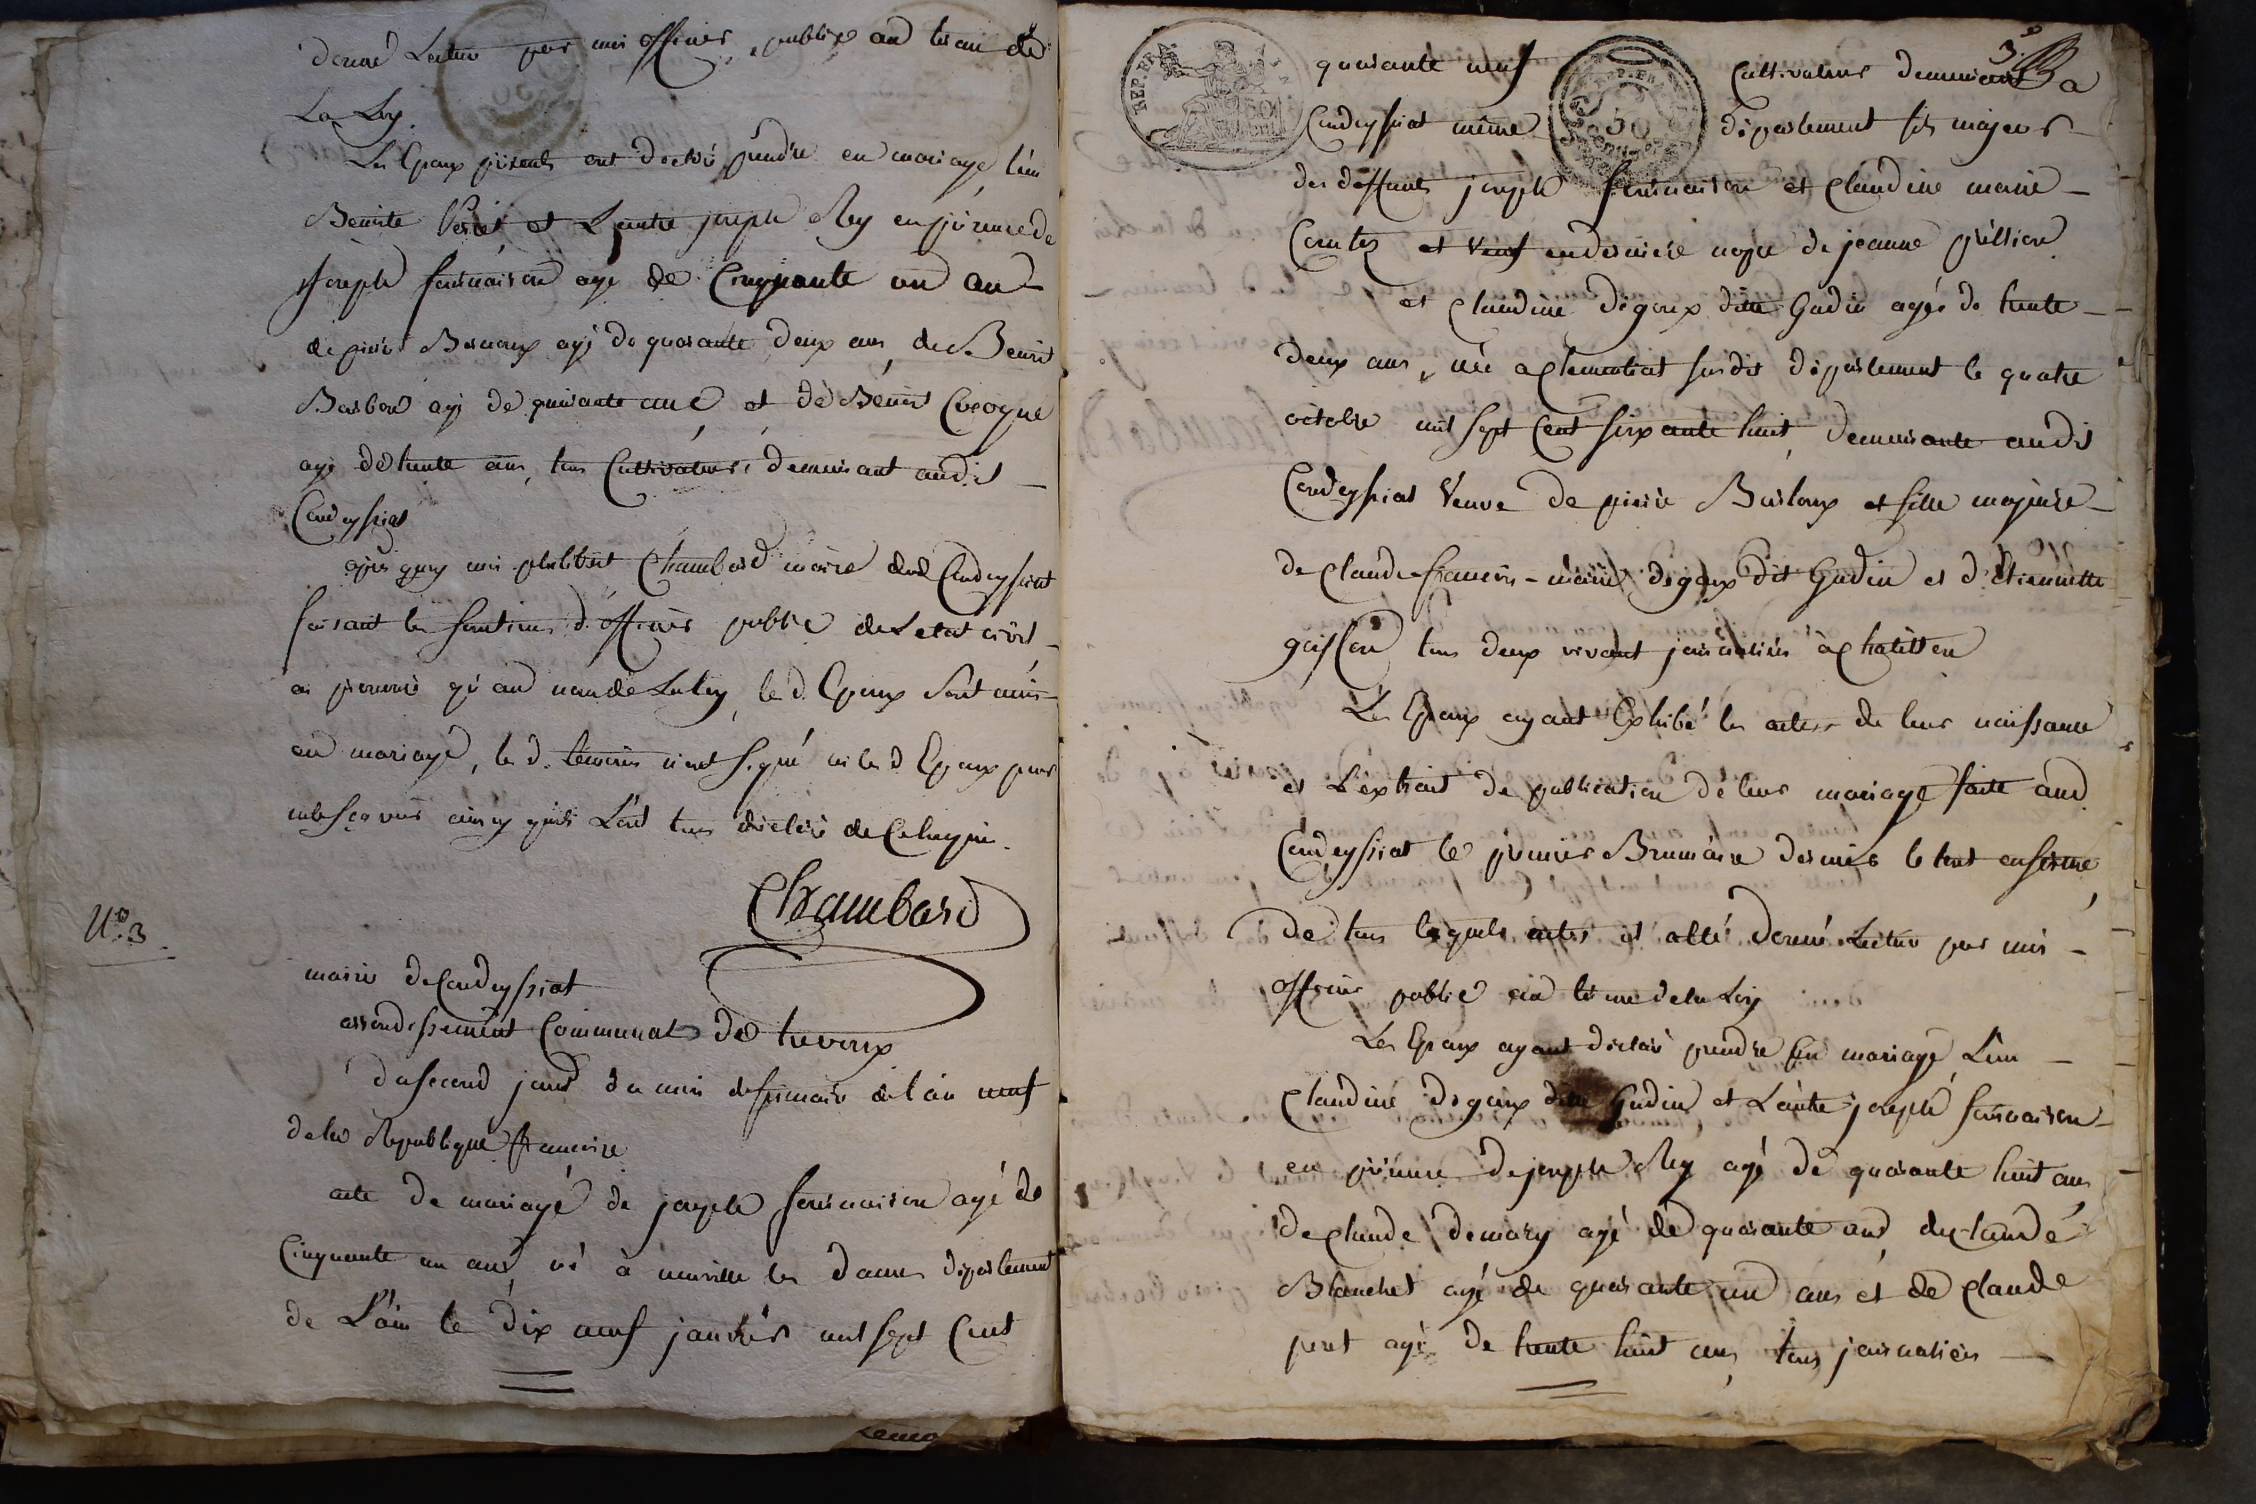 donné Lecture par moi officier public aud terme de
La Loy.
Les Epoux présents ont déclaré prendre en mariage l'un
Benoite Perret et L'autre joseph Rey en présence de
joseph fournaison agé de Cinquante un an
de pierre Bernoux agé de quarante deux ans, de Benoit
Barbere agé de quarante ans et de Benoit Cocogne
agé de trente ans, tous Cultivateurs demeurant audit
Condeyssiat
après quoy moi philibert Chambard maire dud Condeyssiat
faisant les fonctions d'officier public de L'etat civil
ai prononcé qu'aud nom de La loy, les d. Epoux sont unis
en mariage, les d. témoins n'ont signé ni les d Epoux pour
ne le sçavoir ainsy qu'ils L'ont tous déclaré de ce Requis.
Chambard
N.º 3
mairie de Condeyssiat
arrondissement Communal de trevoux
du second jour du mois de frimaire de l'an neuf
de la Republique francaise
acte de mariage de joseph fournaison agé de
Cinquante un ans, né à neuville les dames département
de L'ain le dix neuf janvier mil sept Cent
3e
REP. FRA.
50
quarante neuf Cultivateur demeurant a
Condeyssiat même département fils majeur
des deffunts joseph fournaison et claudine marie
Comtes et Veuf en derniere noce de jeanne
et claudine degoux ditte Gudin agée de trente
deux ans, née a clementiat susdit département le quatre
octobre mil sept Cent soixante huit, demeurante audit
Condeyssiat Veuve de pierre Burloux et fille majeure
de claude francois-marie degoux dit Gudin et d'étiennette
tous deux vivant journaliers à chatillon
Les Epoux ayant Exhibé les actes de leur naissance
et L'extrait de publication de leur mariage faite aud
Condeyssiat le premier Brumaire dernier le tout en forme
de tous lesquels actes il a été donné Lecture par moi
officier public aud terme de la Loy
Les Epoux ayant déclaré prendre En mariage L'un
claudine degoux ditte Gudin et L'autre joseph fournaison
en présence de joseph Rey agé de quarante huit ans
de claude demary agé de quarante ans de claude
Blanchet agé de quarante un ans et de claude
peret agé de trente huit ans, tous journaliers